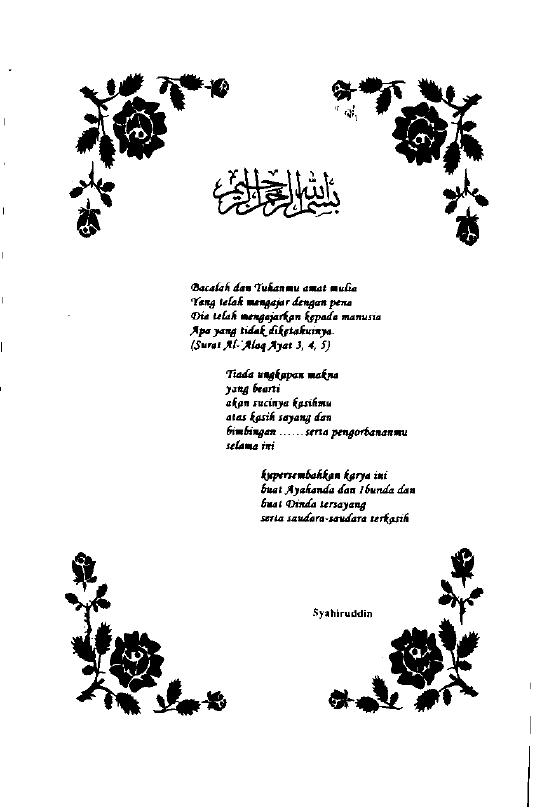 بسم الله الرحمن الرحيم
Bacalah dan Tuhanmu amat mulia
Yang telah mengajar dengan pena
Dia telah mengajarkan kepada manusia
Apa yang tidak diketahuinya.
(Surat Al-'Alaq Ayat 3, 4, 5)
Tiada ungkapan makna
yang bearti
akan sucinya kasihmu
atas kasih sayang dan
bimbingan ...... serta pengorbananmu
selama ini
kupersembahkan karya ini
buat Ayahanda dan Ibunda dan
buat Dinda tersayang
serta saudara-saudara terkasih
Syahiruddin